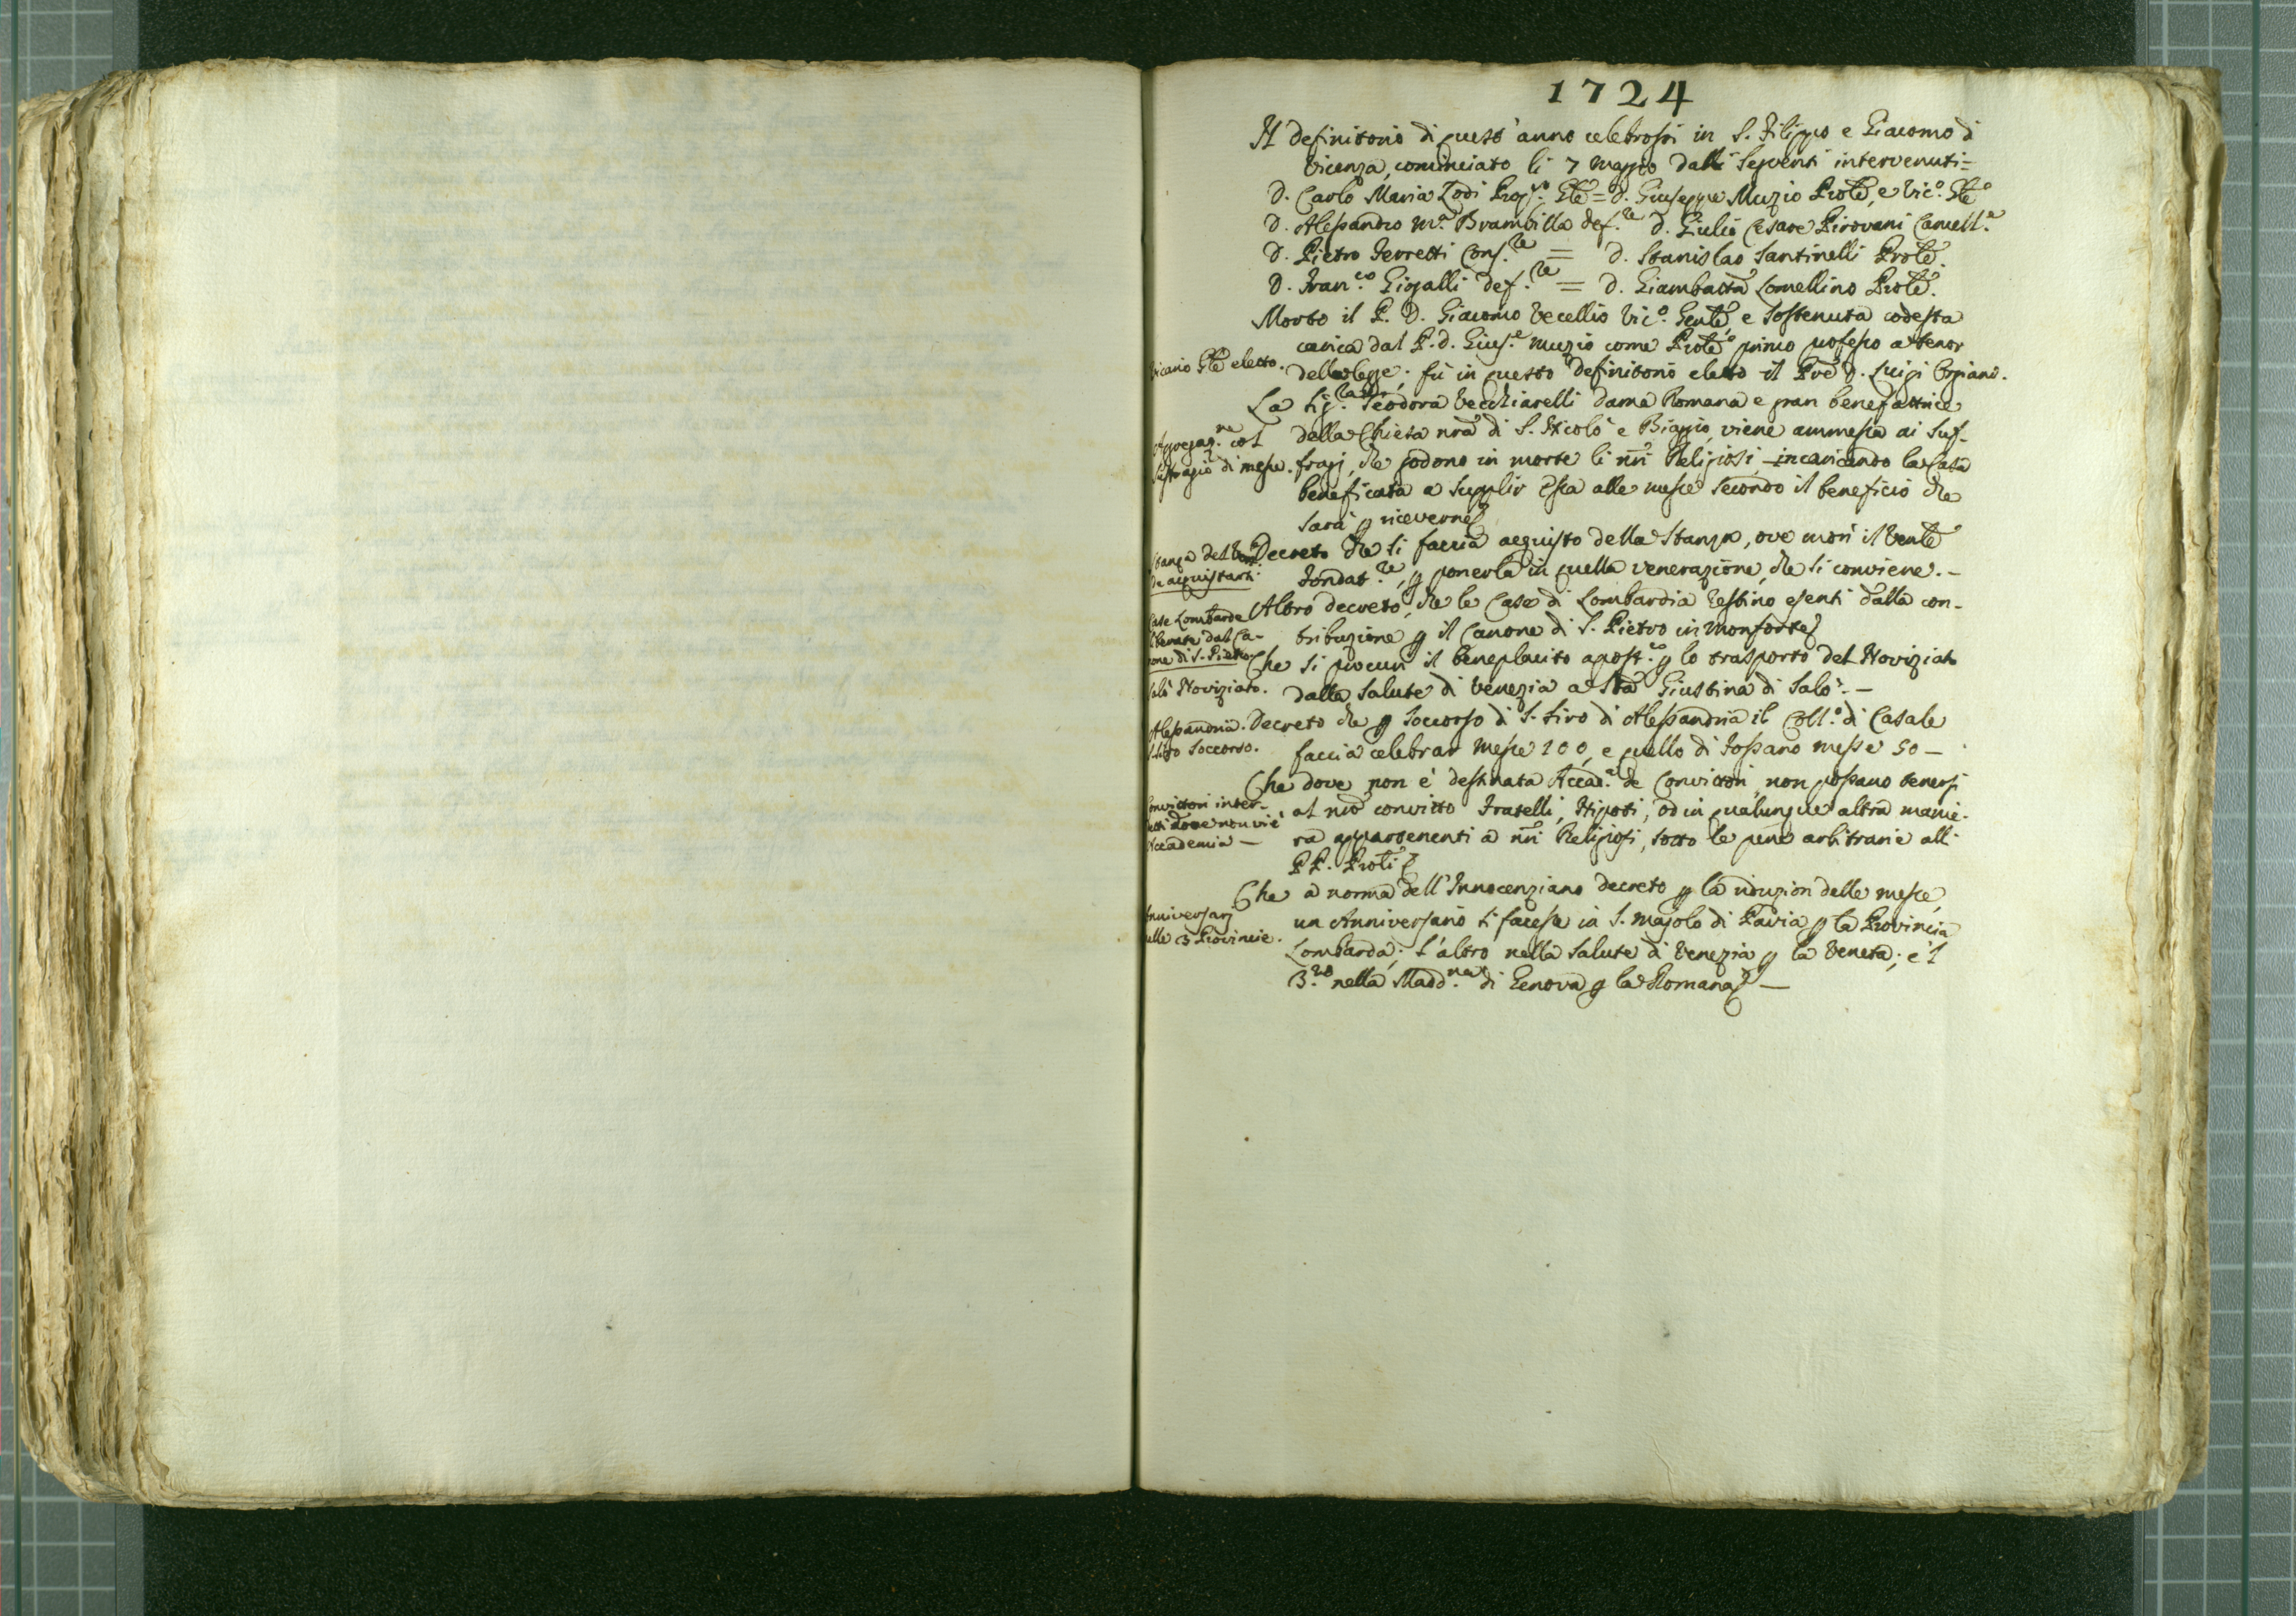 1724
Il definitorio di quest'anno celebrossi in S. Filippo e Giacomo di
Vicenza, cominciato li 7 maggio dalli seguenti intervenuti =
D. Carlo Maria Lodi Prep.to Gãle = D. Giuseppe Muzio Proñle, e Vic.o Gãle
D. Alessandro M.a Brambilla def.re D. Giulio Cesare Pirovani Cancell.e
D. Pietro Ferretti Cons.re = D. Stanislao Santinelli Proñle.
D. Fran.co Gigalli def.re = D. Giambatta Lomellino Proñle.
Morto il P. D. Giacomo Vecellio Vic.o Genle, e sostenuta codesta
carica dal P. D. Gius.e Muzio come Proñle primo professo a tenor
Vicario Gãle eletto.
della legge; fù in questo definitorio eletto il Prẽ D. Luigi
La Sig.ra D. Teodora Vecchiarelli dama Romana e gran benefattrice
Aggregaz.ne col
della Chiesa nrã di S. Nicolò e Biaggio, viene ammessa ai suf-
suffragio di messe.
fragj, che godono in morte li nrĩ Religiosi, incaricando la Casa
beneficata a supplir essa alle messe secondo il beneficio che
sarà p riceverne
Stanza del Ven.
Decreto che si faccia acquisto della stanza, ove morì il Venle
da acquistarsi.
Fondat.re, p ponerla in quella venerazione, che si conviene. -
Case Lombarde
Altro decreto, che le Case di Lombardia restino esenti dalla con-
liberate dal Ca-
tribuzione p il Canone di S. Pietro in Monforte
none di S. Pietro.
Che si procuri il beneplacito apost.co p lo trasporto del Noviziato
Salò Noviziato.
dalla Salute di Venezia a Sta Giustina di Salò. -
Alessandria.
Decreto che p soccorso di S. Siro di Alessandria il Coll.o di Casale
S. Siro soccorso.
faccia celebrar messe 100, e quello di Fossano messe 50 -
Che dove non è destinata Accad.a de Convittori, non possano tenersi
Convittori inter-
al nrõ convitto Fratelli, Nipoti, od in qualunque altra manie-
detti dove non vi è
ra appartenenti a nrĩ Religiosi, sotto le pene arbitrarie alli
Accademia -
PP. Proñli
Che a norma dell'Innocenziano decreto p la riduzion delle messe,
Anniversarj
un Anniversario si facesse in S. Majolo di Pavia p la Provincia
nelle 3 Provincie.
Lombarda; l'altro nella Salute di Venezia p la Veneta; e'l
3.zo nella Madd.na di Genova p la Romana -